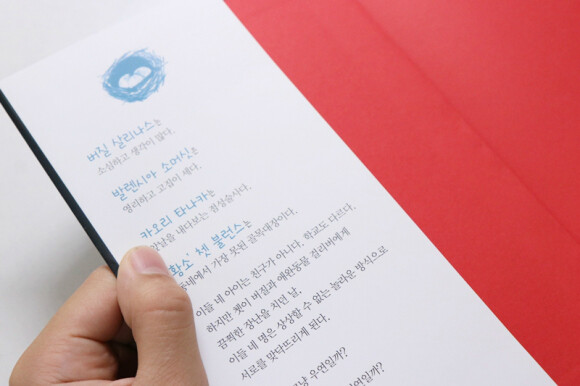 버질 살리나스는
소심하고 생각이 많다.
발렌시아 소머싯은
영리하고 고집이 세다.
카오리 타나카는
앞날을 내다보는 점성술사다.
'황소' 쳇 불런스는
동네에서 가장 못된 골목대장이다.
이들 네 아이는 친구가 아니다. 학교도 다르다.
하지만 쳇이 버질과 애완동물 걸리버에게
끔찍한 장난을 치던 날,
이들 네 명은 상상할 수 없는 놀라운 방식으로
서로를 맞닥뜨리게 된다.
우연일까?